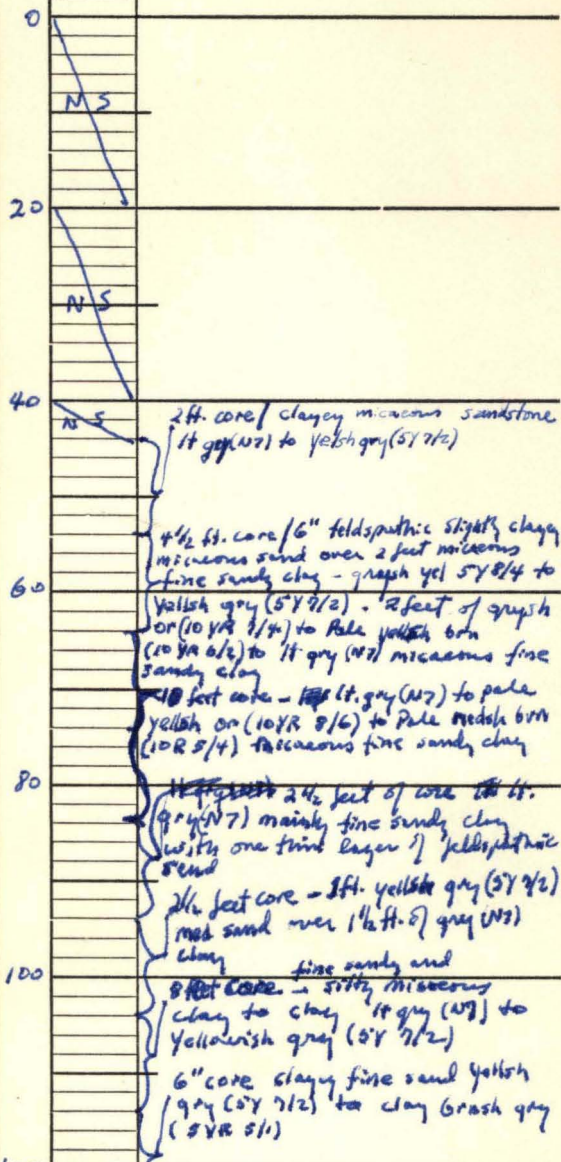 0
N S
20
N S
40
N S
2 ft. core / clayey micaeous sandstone
lt gry (N7) to yelsh gry (5Y 7/2)
4 1/2 ft. core / 6" feldspathic slightly clayey
micaeous sand over 2 feet micaeous
fine sandy clay - graysh yel 5Y 8/4 to
60
yellsh gry (5Y 7/2). 2 feet of graysh
or (10 YR 7/4) to Pale yellsh brn
(10 YR 6/2) to lt gry (N7) micaeous fine
sandy clay
10 feet core - lt. gry (N7) to pale
yellsh or (10YR 8/6) to Pale redsh brn
(10R 5/4) micaeous fine sandy clay
80
2 1/2 feet of core lt.
gry (N7) mainly fine sandy clay
with one thin layer of feldspathic
sand
2 1/2 feet core - 1 ft. yellsh gry (5Y 7/2)
med sand over 1 1/2 ft. of gry (N7)
clay
100
fine sandy and
8 feet core - silty micaeous
clay to clay lt gry (N7) to
yellowish gry (5Y 7/2)
6" core clayey fine sand yellsh
gry (5Y 7/2) to clay brnsh gry
(5YR 5/1)